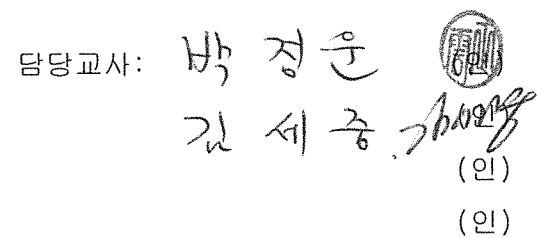 담당교사: 박 정 운 (인)
김 세 중 (인)
(인)
(인)